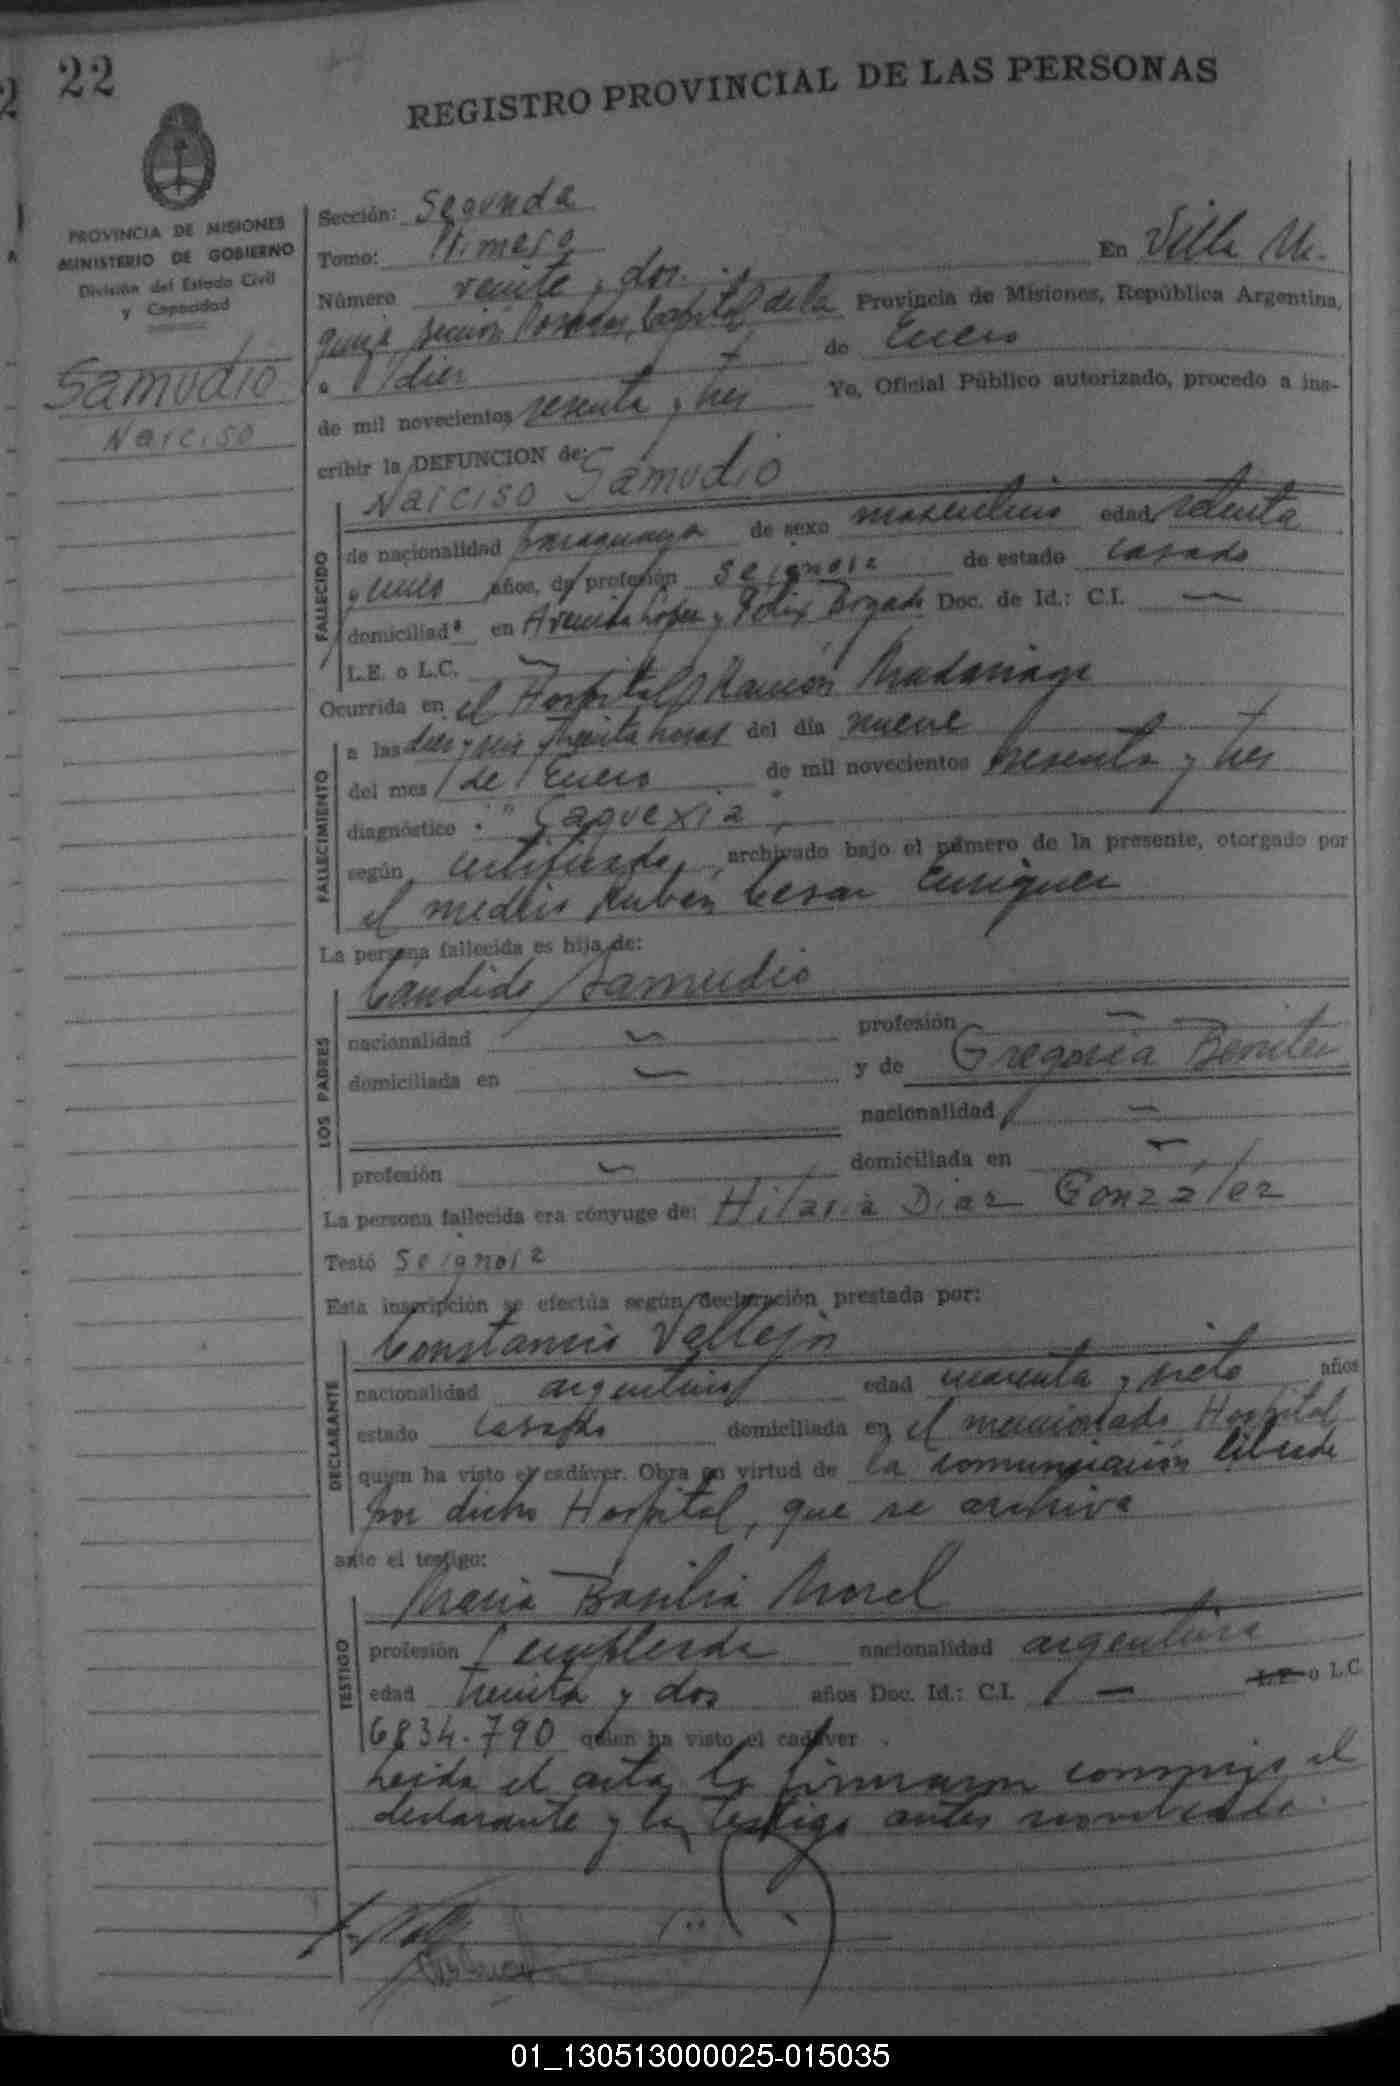 22
REGISTRO PROVINCIAL DE LAS PERSONAS
PROVINCIA DE MISIONES
MINISTERIO DE GOBIERNO
División del Estado Civil
y Capacidad
Samudio
Narciso
Sección: Segunda
Tomo: Primero
Número veinte y dos. En Villa Ur-
quiza sección Posadas, Capital de la Provincia de Misiones, República Argentina,
a diez de Enero
de mil novecientos sesenta y tres Yo, Oficial Público autorizado, procedo a ins-
cribir la DEFUNCION de:
Narciso Samudio
FALLECIDO
de nacionalidad paraguaya de sexo masculino edad setenta
y años, de profesión se ignora de estado casado
domiciliado en Avenida López y Félix Bogado Doc. de Id.: C.I. —
L.E. o L.C. —
Ocurrida en el Hospital Ramón Madariaga
FALLECIMIENTO
a las diez y seis y treinta horas del día nueve
del mes de Enero de mil novecientos sesenta y tres
diagnóstico "Caquexia"
según certificado, archivado bajo el número de la presente, otorgado por
el médico Rubén Cesar Enriquez
La persona fallecida es hija de:
Cándido Samudio
LOS PADRES
nacionalidad — profesión —
domiciliada en — y de Gregoria Benitez
nacionalidad —
profesión — domiciliada en —
La persona fallecida era cónyuge de: Hilaria Diaz González
Testó Se ignora
Esta inscripción se efectúa según declaración prestada por:
Constancio Vallejos
DECLARANTE
nacionalidad argentino edad cuarenta y siete años
estado casado domiciliada en el mencionado Hospital
quien ha visto el cadáver. Obra en virtud de la comunicación librada
por dicho Hospital, que se archiva
ante el testigo:
María Basilia Morel
TESTIGO
profesión empleada nacionalidad argentina
edad treinta y dos años Doc. Id.: C.I. — L.E. o L.C.
6834.790 quien ha visto el cadáver.
Leída el acta, la firmaron conmigo el
declarante y la testigo antes nombrada.
01_130513000025-015035